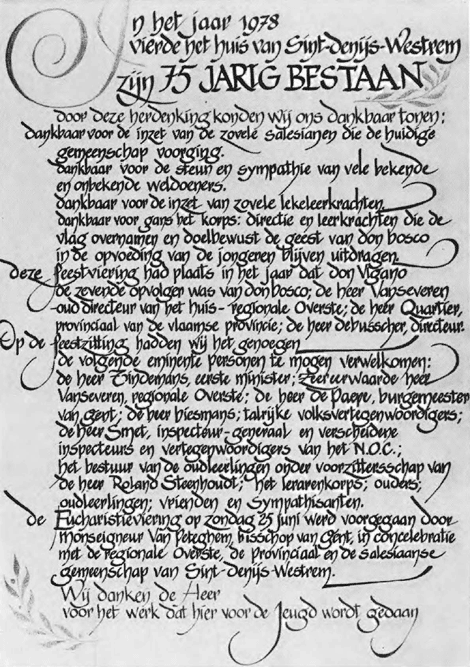 In het jaar 1978
vierde het huis van Sint-Denijs-Westrem
zijn 75 JARIG BESTAAN
door deze herdenking konden wij ons dankbaar tonen:
dankbaar voor de inzet van de zovele salesianen die de huidige
gemeenschap voorging.
dankbaar voor de steun en sympathie van vele bekende
en onbekende weldoeners.
dankbaar voor de inzet van zovele lekeleerkrachten
dankbaar voor gans het korps: directie en leerkrachten die de
vlag overnamen en doelbewust de geest van don bosco
in de opvoeding van de jongeren blijven uitdragen.
deze feestviering had plaats in het jaar dat don Vigano
de zevende opvolger was van don bosco; de heer Vanseveren
-oud directeur van het huis- regionale Overste; de heer Quartier,
provinciaal van de vlaamse provincie; de heer debusscher, directeur.
Op de feestzitting hadden wij het genoegen
de volgende eminente personen te mogen verwelkomen:
de heer Tindemans, eerste minister; Zeer eerwaarde heer
Vanseveren, regionale Overste; de heer de Paepe, burgemeester
van Gent; de heer hiesmans; talrijke volksvertegenwoordigers;
de heer Smet, inspecteur-generaal en verscheidene
inspecteurs en vertegenwoordigers van het N.O.C.;
het bestuur van de oudleerlingen onder voorzittersschap van
de heer Roland Steenhoudt; het lerarenkorps; ouders;
oudleerlingen; vrienden en sympathisanten.
de Eucharistieviering op zondag 25 juni werd voorgegaan door
Monseigneur Van Peteghem, bisschop van Gent, in concelebratie
met de regionale Overste, de provinciaal en de salesiaanse
gemeenschap van Sint-Denijs-Westrem.
Wij danken de Heer
voor het werk dat hier voor de Jeugd wordt gedaan